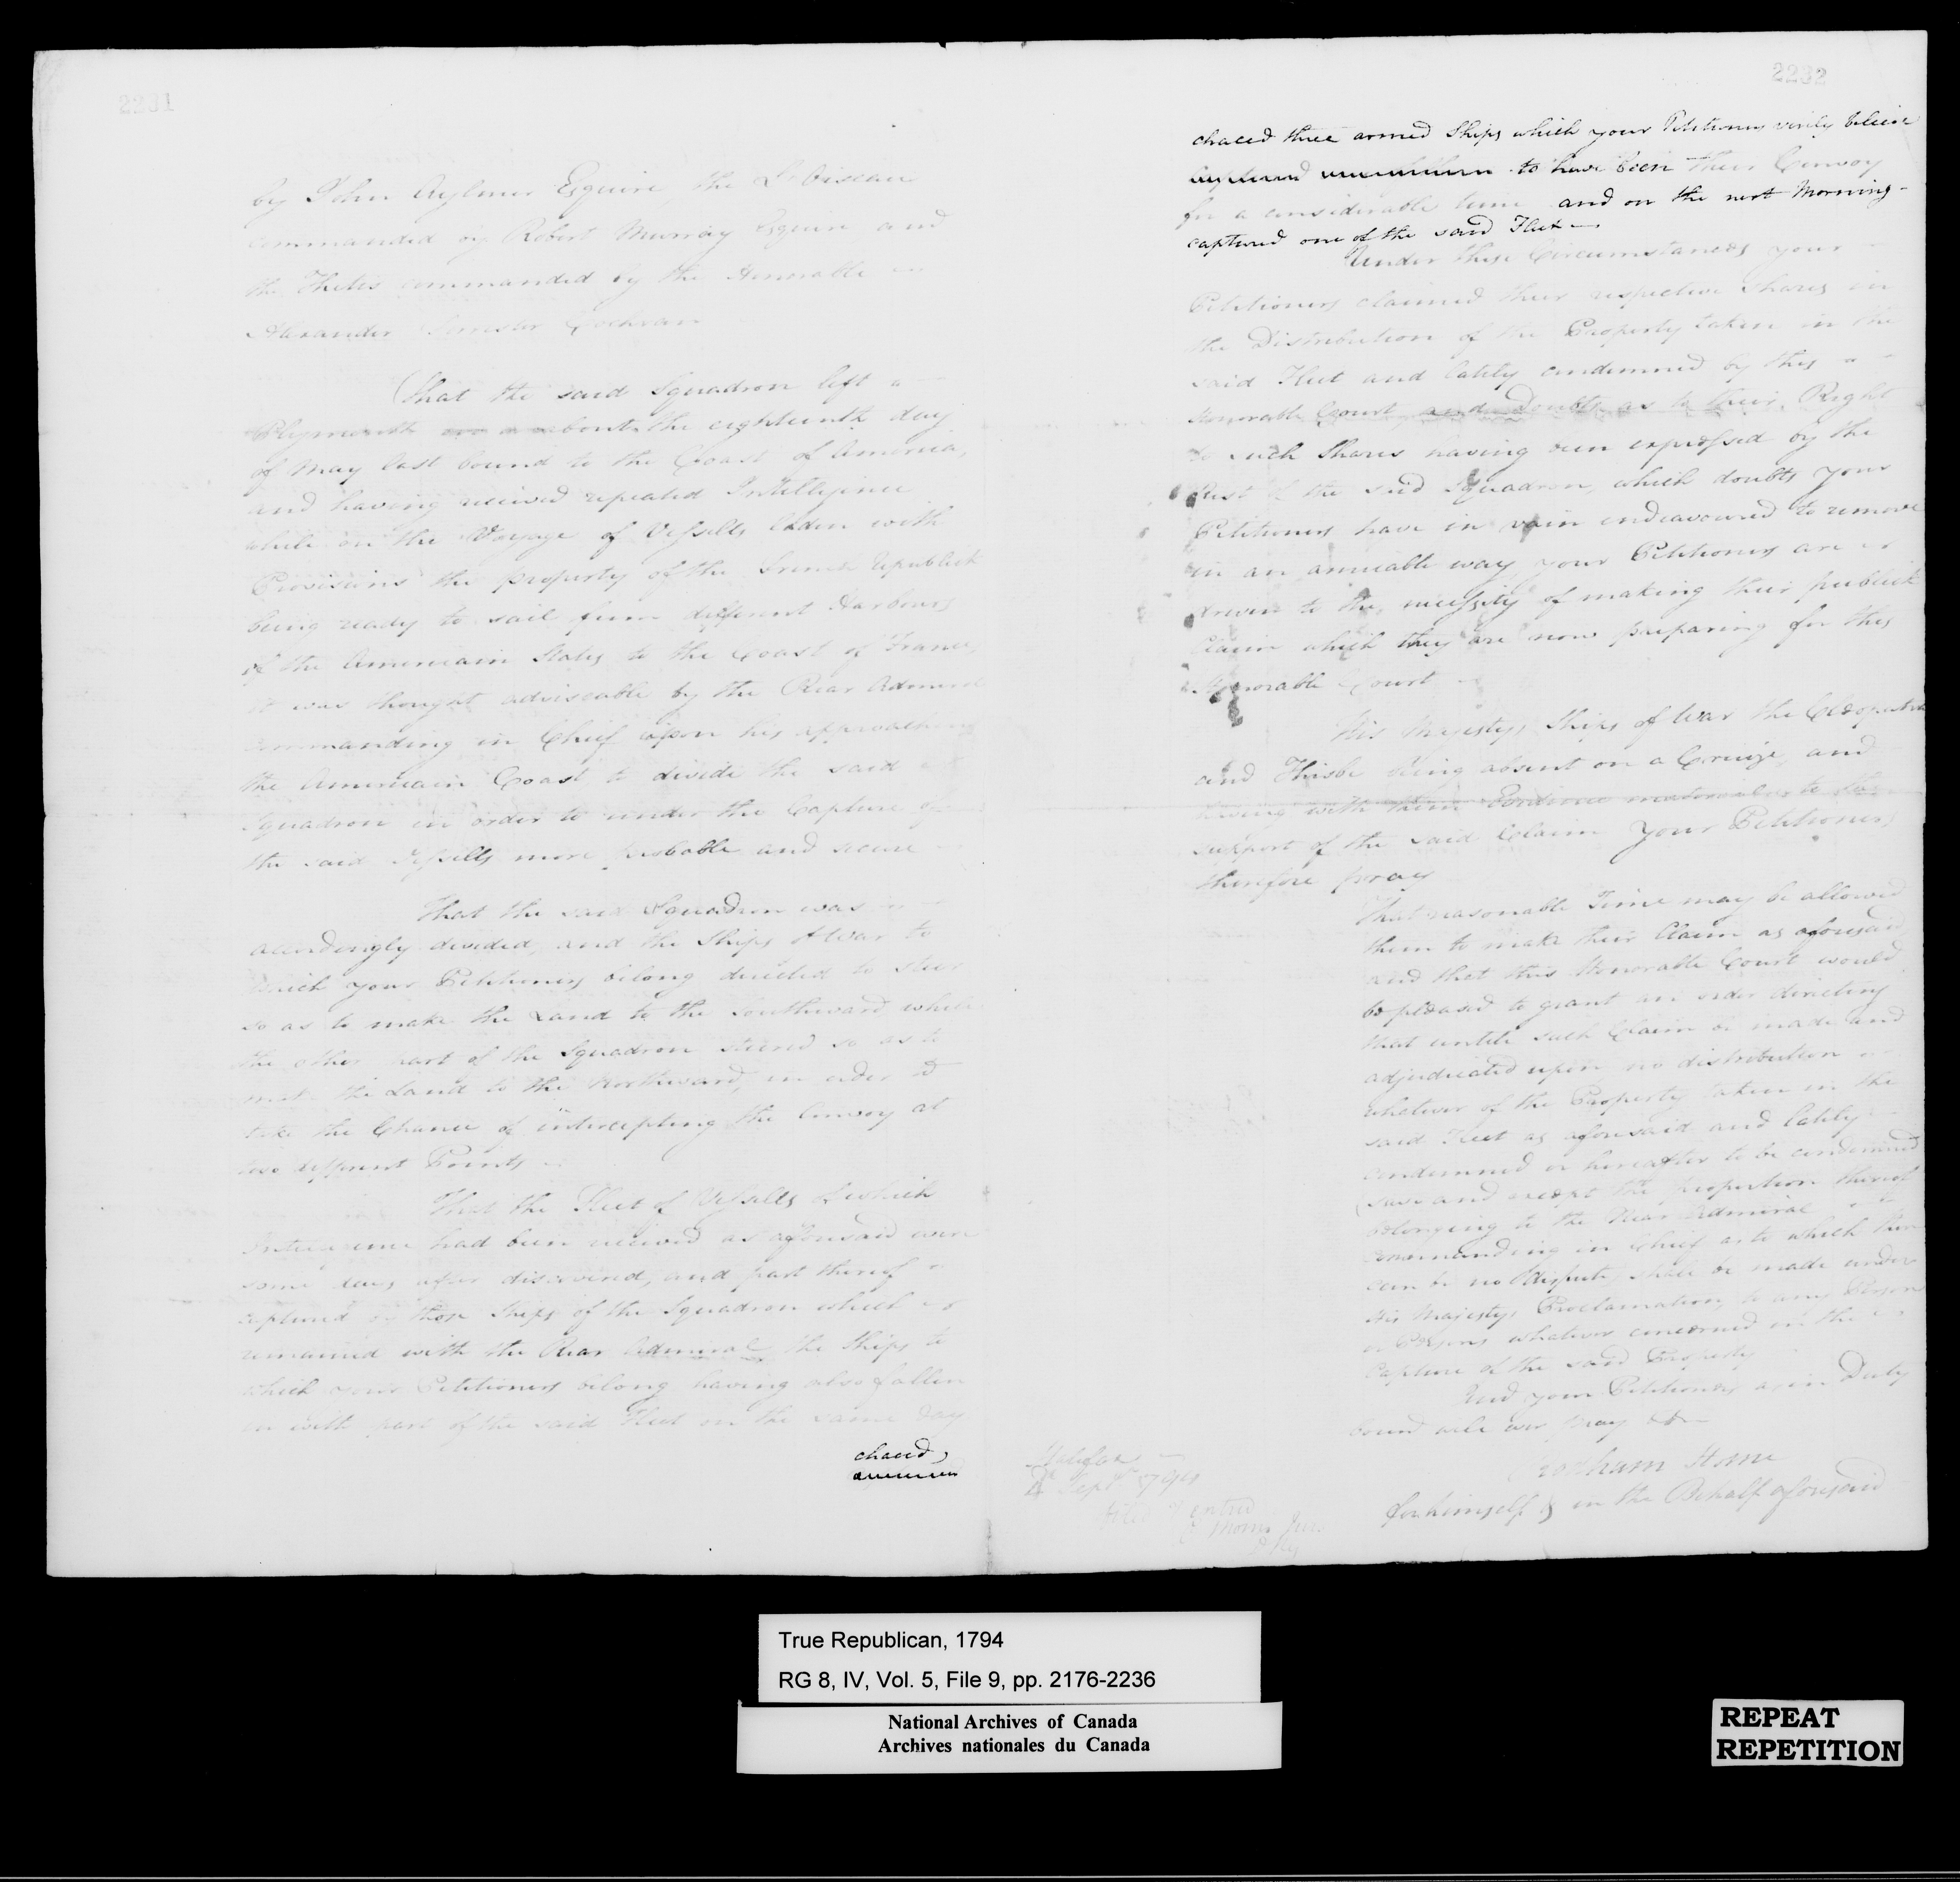 2231
by John Aylmer Esquire the L'Oiseau
commanded by Robert Murray Esquire and
the Thetis commanded by the Honorable
Alexander Cochran
That the said Squadron left
Plymouth on or about the eighteenth day
of May last bound to the Coast of America,
and having received repeated Intelligence
while on the Voyage of Vessells laden with
Provisions the property of the French Republick
being ready to sail from different Harbours
of the American States to the Coast of France,
it was thought adviseable by the Rear Admiral
commanding in Chief upon his approaching
the American Coast to divide the said
Squadron in order to render the Capture of
the said Vessells more probable and secure
That the said Squadron was
accordingly divided, and the Ships of War to
which your Petitioners belong directed to steer
so as to make the Land to the Southward while
the other part of the Squadron steered so as to
the Land to the Northward, in order to
take the Chance of intercepting the Convoy at
two different Points
That the Fleet of Vessells of which
Intelligence had been received as aforesaid were
some days after discovered, and part thereof
captured by those Ships of the Squadron which
remained with the Rear Admiral the Ships to
which your Petitioners belong having also fallen
in with part of the said Fleet on the same day
chaced,
2232
chaced three armed Ships which your Petitioners verily believe
captured to have been their Convoy
for a considerable time and on the next Morning
captured one of the said Fleet
Under these Circumstances your
Petitioners claimed their respective Shares in
the Distribution of the Property taken in the
said Fleet and lately condemned by this
Honorable Court and Doubts as to their Right
to such Shares having been expressed by the
rest of the said Squadron, which doubts your
Petitioners have in vain endeavoured to remove
in an amicable way your Petitioners are
driven to the necessity of making their publick
Claim which they are now preparing for this
Honorable Court
His Majestys Ships of War the Cleopatra
and Thisbe being absent on a Cruize and
having with them Evidence material to the
support of the said Claim your Petitioners
therefore pray
That reasonable Time may be allowed
them to make their Claim as aforesaid
and that this Honorable Court would
be pleased to grant an order directing
that untill such Claim be made and
adjudicated upon no distribution
whatever of the Property taken in the
said Fleet as aforesaid and lately
condemned or hereafter to be condemned
(save and except the proportion thereof
belonging to the Rear Admiral
commanding in Chief as to which there
can be no dispute) shall be made under
His Majestys Proclamation, to any Person
or Persons whatever concerned in the
Capture of the said Property
And your Petitioners as in Duty
bound will ever pray &c
Home
for himself & in the Behalf aforesaid
Halifax
Sept 1794
filed & entred
True Republican, 1794
RG 8, IV, Vol. 5, File 9, pp. 2176-2236
National Archives of Canada
Archives nationales du Canada
REPEAT
REPETITION